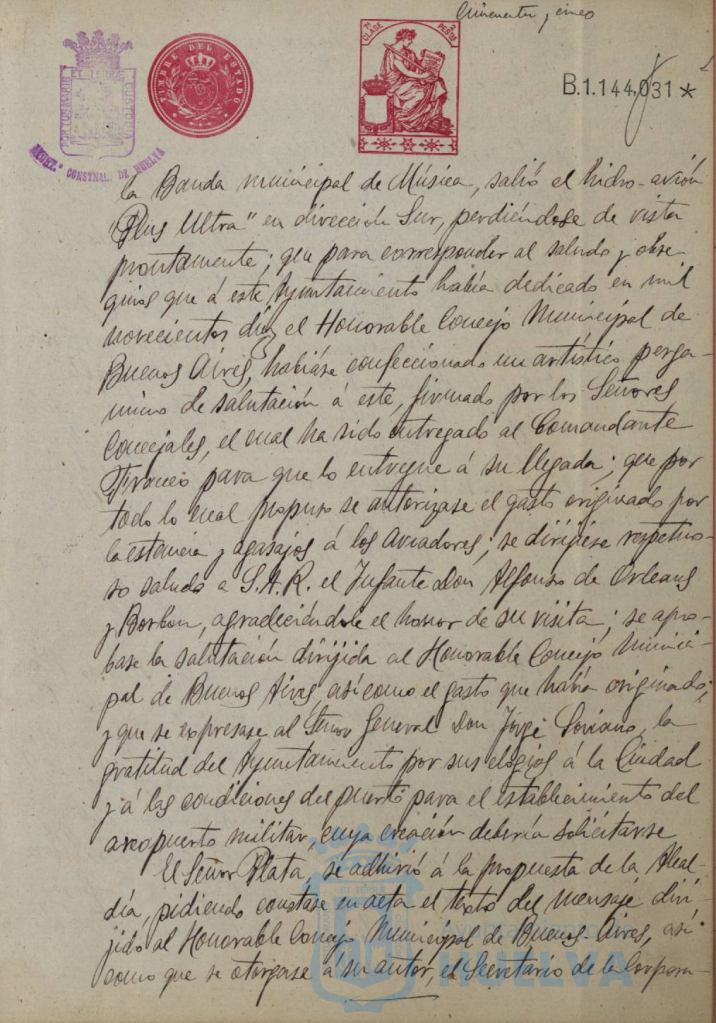 Cincuenta y cinco
ET TERRE CUSTODIA
PORTUS MARIS
AYUNT.º CONSTNAL. DE HUELVA
TIMBRE DEL ESTADO
7ª CLASE
1 PESETA
B.1.144,031 *
la Banda municipal de Música, salió el hidro-avión
"Plus Ultra" en dirección Sur, perdiéndose de vista
prontamente; que para corresponder al saludo y obse
quios que á este Ayuntamiento había dedicado en mil
novecientos diez el Honorable Concejo Municipal de
Buenos Aires, habíase confeccionado un artístico perga-
mino de salutación á este, firmado por los Señores
Concejales, el cual ha sido entregado al Comandante
Franco para que lo entregue á su llegada; que por
todo lo cual propuso se autorizase el gasto originado por
la estancia y agasajos á los Aviadores; se dirigiese respetuo-
so saludo a S.A.R. el Infante Don Alfonso de Orleans
y Borbon, agradeciéndole el honor de su visita; se apro-
base la salutación dirijida al Honorable Concejo Munici-
pal de Buenos Aires, así como el gasto que había originado;
y que se expresase al Señor General Don Jorge Soriano, la
gratitud del Ayuntamiento por sus elogios á la Ciudad
y á las condiciones del puerto para el establecimiento del
areopuerto militar, cuya creación debería solicitarse
El Señor Plata, se adhirió á la propuesta de la Alcal-
día, pidiendo constase en acta el texto del mensaje diri-
jido al Honorable Concejo Municipal de Buenos-Aires, así
como que se otorgase á su autor, el Secretario de la Corpora-
HUELVA